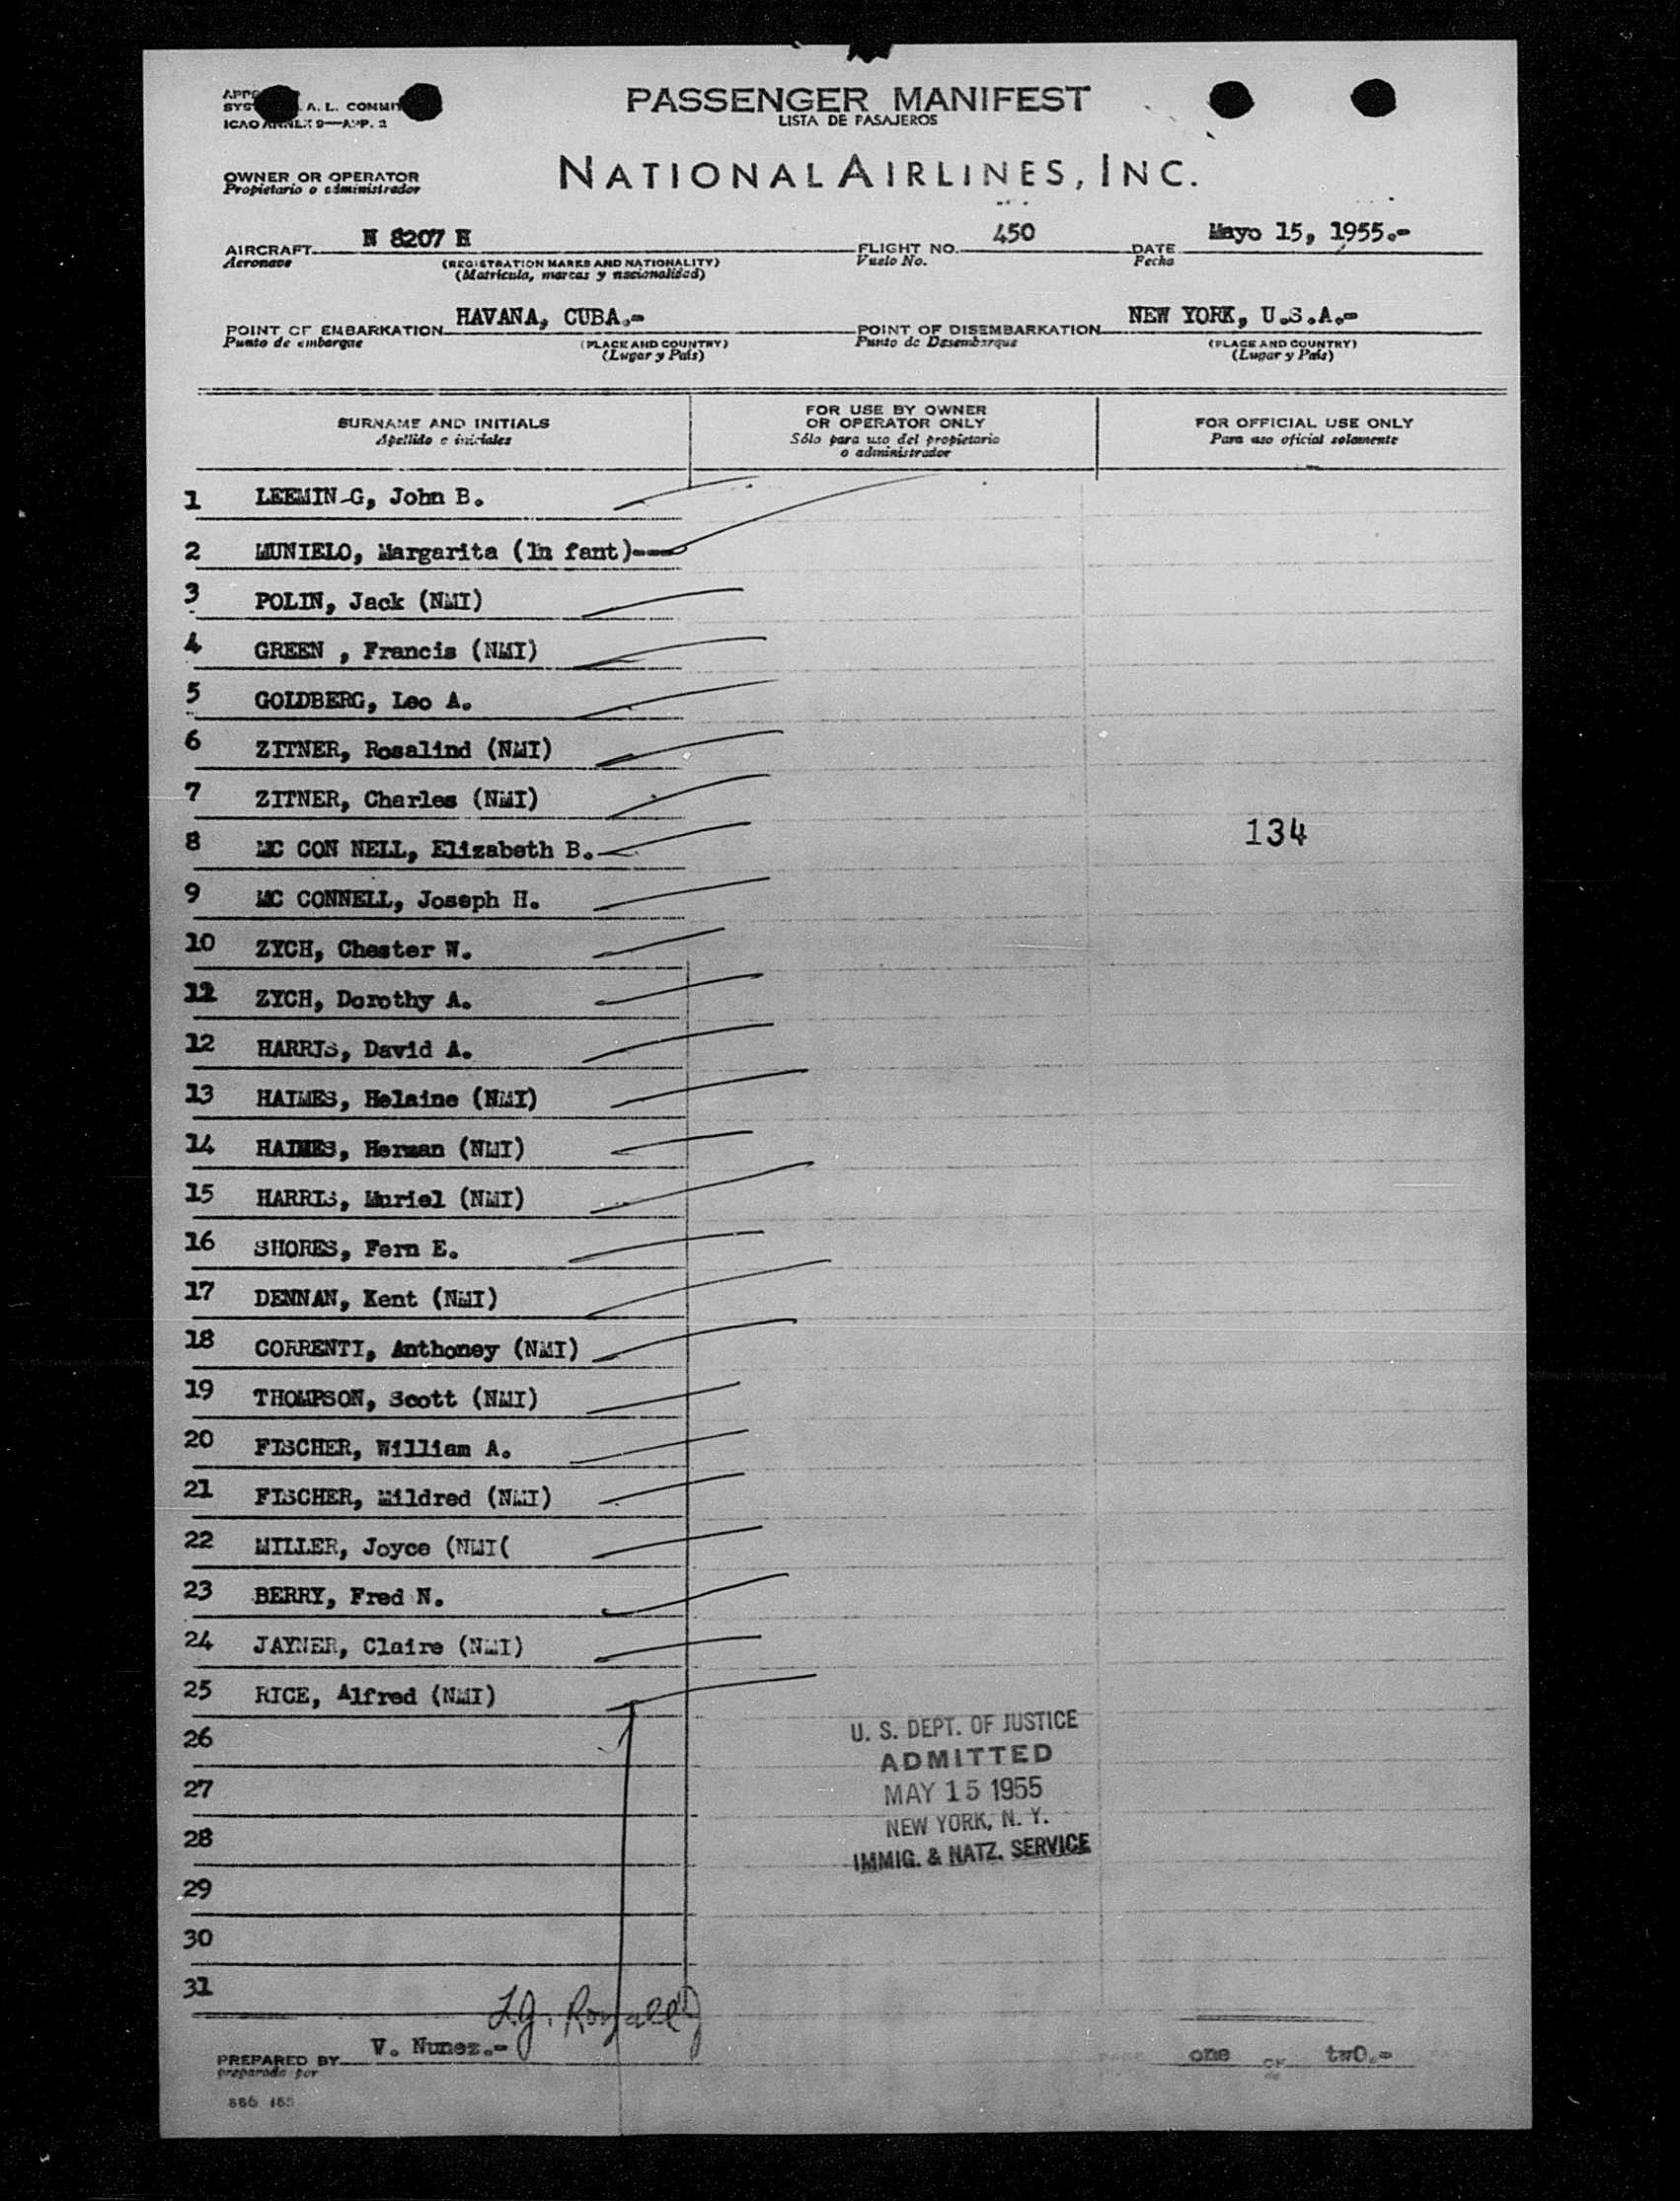 PASSENGER MANIFEST
LISTA DE PASAJEROS
A. L.
ICAO ANNEX 9—APP. 2
OWNER OR OPERATOR
Propietario o administrador
NATIONAL AIRLINES, INC.
AIRCRAFT N 8207 H FLIGHT NO. 450 DATE Mayo 15, 1955.-
Aeronave (REGISTRATION MARKS AND NATIONALITY) Vuelo No. Fecha
(Matricula, marcas y nacionalidad)
POINT OF EMBARKATION HAVANA, CUBA.- POINT OF DISEMBARKATION NEW YORK, U.S.A.-
Punto de embarque (PLACE AND COUNTRY) Punto de Desembarque (PLACE AND COUNTRY)
(Lugar y País) (Lugar y País)
SURNAME AND INITIALS
Apellido e iniciales
FOR USE BY OWNER
OR OPERATOR ONLY
Sólo para uso del propietario
o administrador
FOR OFFICIAL USE ONLY
Para uso oficial solamente
1 LEEMIN-G, John B.
2 MUNIELO, Margarita (In fant)---
3 POLIN, Jack (NMI)
4 GREEN , Francis (NMI)
5 GOLDBERG, Leo A.
6 ZITNER, Rosalind (NMI)
7 ZITNER, Charles (NMI)
134
8 MC CON NELL, Elizabeth B.
9 MC CONNELL, Joseph H.
10 ZYCH, Chester W.
12 ZYCH, Dorothy A.
12 HARRIS, David A.
13 HAIMES, Helaine (NMI)
14 HAIMES, Herman (NMI)
15 HARRIS, Muriel (NMI)
16 SHORES, Fern E.
17 DENNAN, Kent (NMI)
18 CORRENTI, Anthoney (NMI)
19 THOMPSON, Scott (NMI)
20 FISCHER, William A.
21 FISCHER, Mildred (NMI)
22 MILLER, Joyce (NMI(
23 BERRY, Fred N.
24 JAYNER, Claire (NMI)
25 RICE, Alfred (NMI)
26
27
28
29
30
31
U. S. DEPT. OF JUSTICE
ADMITTED
MAY 15 1955
NEW YORK, N. Y.
IMMIG. & NATZ. SERVICE
PREPARED BY V. Nunez.-
preparado por
one OF twO.-
de